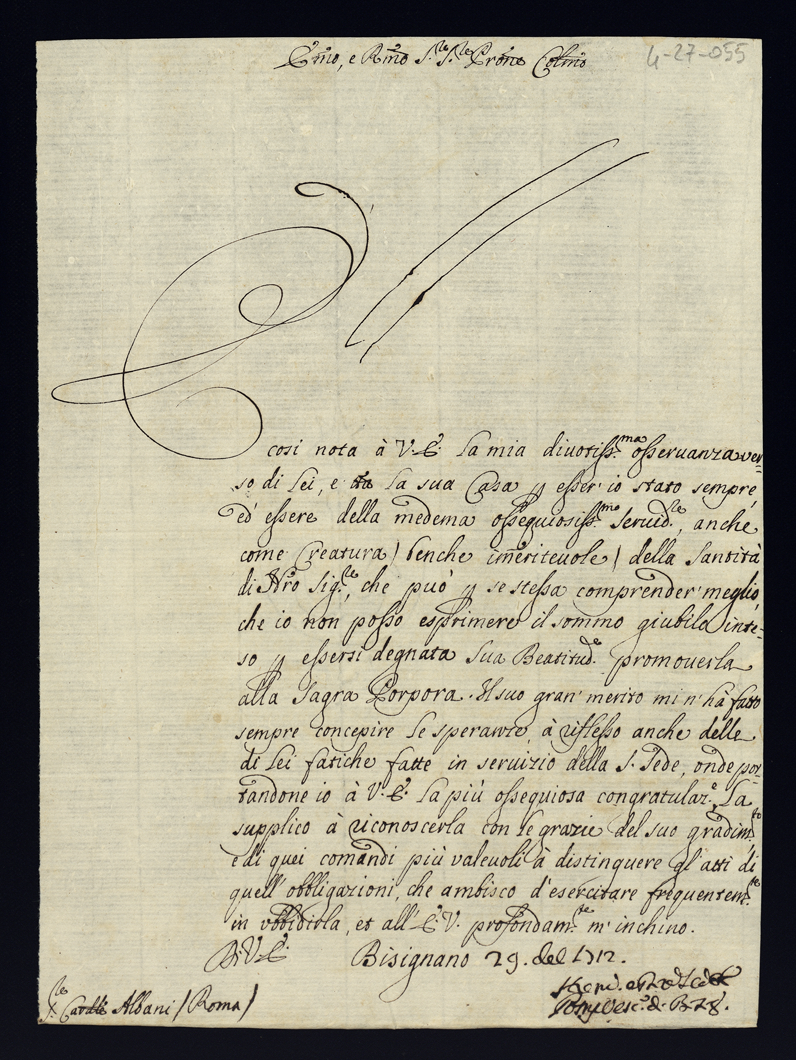 Em̃o, e Rm̃o S.re S.re Prõne Colmõ
4-27-055
È
cosi nota à V. E. la mia diuotiss.ma osseruanza ver-
so di Lei, e la sua Casa p esser' io stato sempre,
ed' essere della medema ossequiosiss.mo seruid.re, anche
come Creatura / benche im̃eriteuole / della Santità
di Nr̃o Sig.re, che può p se stessa comprender' meglio,
che io non posso esprimere il sommo giubilo inte-
so p essersi degnata Sua Beatitud.e promouerla
alla Sagra Porpora. Il suo gran' merito mi n'hà fatto
sempre concepire le speranze, à riflesso anche delle
di Lei fatiche fatte in seruizio della S. Sede, onde por-
tandone io à V. E. la più ossequiosa congratulaz.e La
supplico à riconoscerla con le grazie del suo gradim.to
e di quei comandi più valeuoli à distinguere gl'atti di
quell'obbligazioni, che ambisco d'esercitare frequentem.te
in vbbidirla, et all'E. V. profondam.te m'inchino.
Di V. E. Bisignano 29. del 1712.
S.re Card.le Albani / Roma /
Vesc.o di